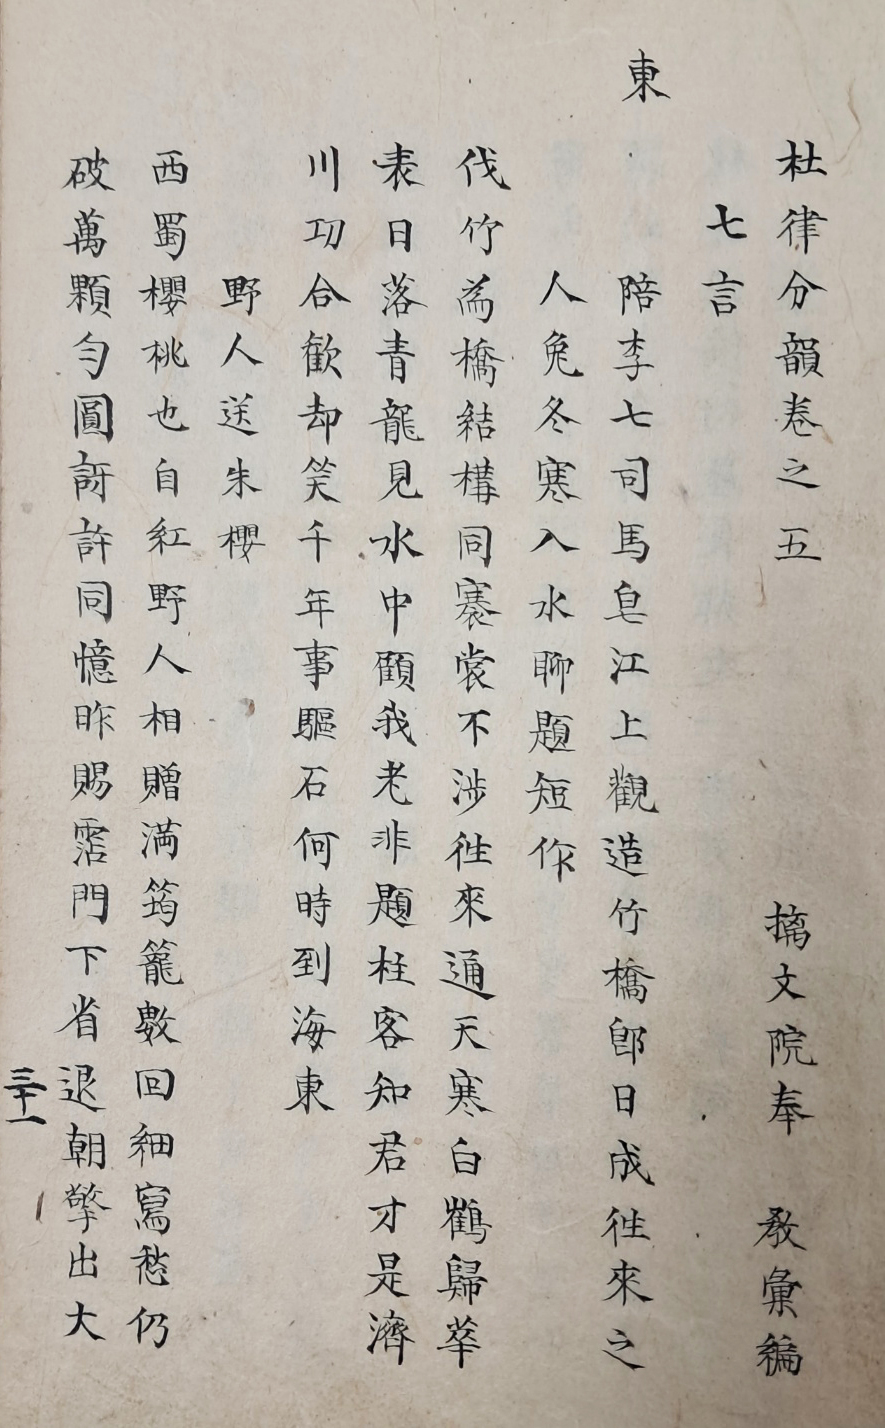 杜律分韻卷之五
摛文院奉 敎彙編
七言
東
陪李七司馬皂江上觀造竹橋卽日成徃來之
人免冬寒入水聊題短作
伐竹為橋結構同褰裳不涉徃來通天寒白鶴歸華
表日落青龍見水中顧我老非題柱客知君才是濟
川功合歡却笑千年事驅石何時到海東
野人送朱櫻
西蜀櫻桃也自紅野人相贈滿筠籠數回細寫愁仍
破萬顆勻圓訝許同憶昨賜霑門下省退朝擎出大
三十一